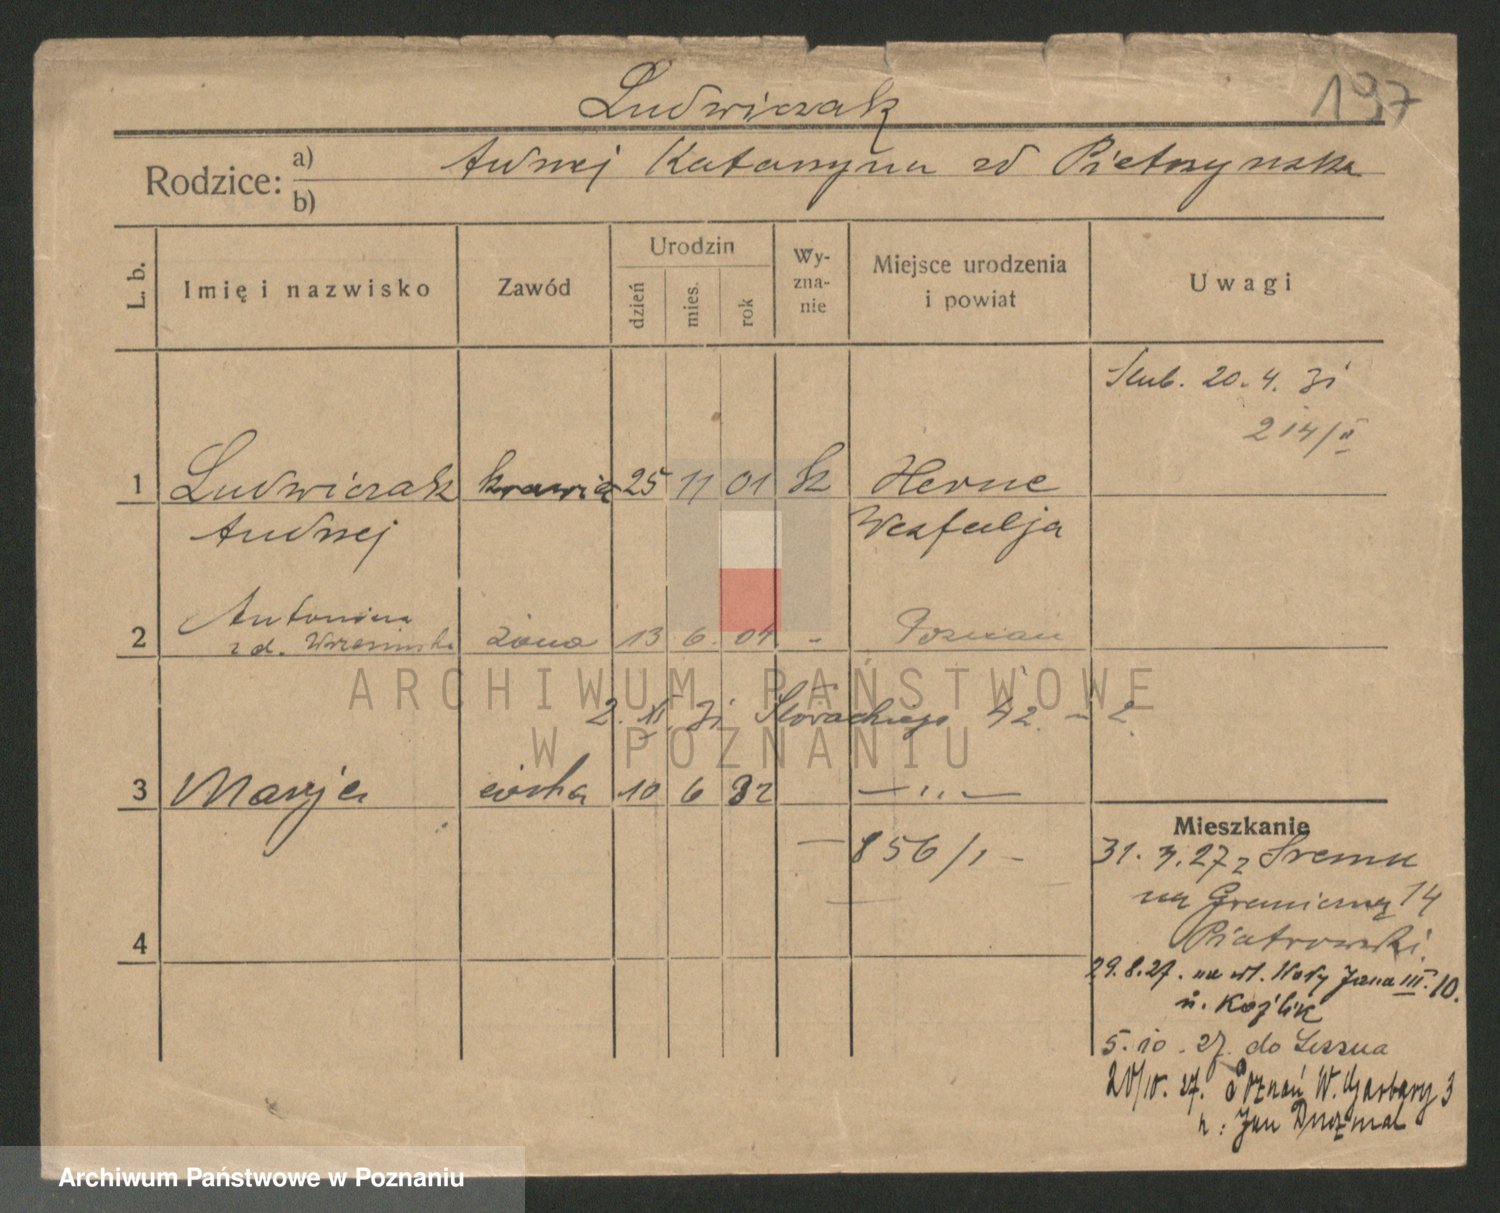 Ludwiczak
197
Rodzice: a) Andrzej Katarzyna zd Pietrzynska
b)
L. b. Imię i nazwisko Zawód Urodzin dzień mies. rok Wyznanie Miejsce urodzenia i powiat Uwagi
Slub. 20. 4. 31
214/II
1 Ludwiczak krawiec 25 11 01 rk Herne
Andrzej Westfalja
2 Antonina
z d. Wrzesinska żona 13 6. 04 - Poznan
2. 31 Słowackiego 42. - 2.
3 Marja córka 10 6 32 — " —
Mieszkanie
— 856/1 —
31. 3. 27 z Sremu
na Graniczną 14
Piatrowski.
4
29. 8. 27. na Jana III. 10.
u. Kozlik
5. 10. 27. do Leszna
27. Poznań W. Garbary 3
u: Jan
ARCHIWUM PAŃSTWOWE
W POZNANIU
Archiwum Państwowe w Poznaniu